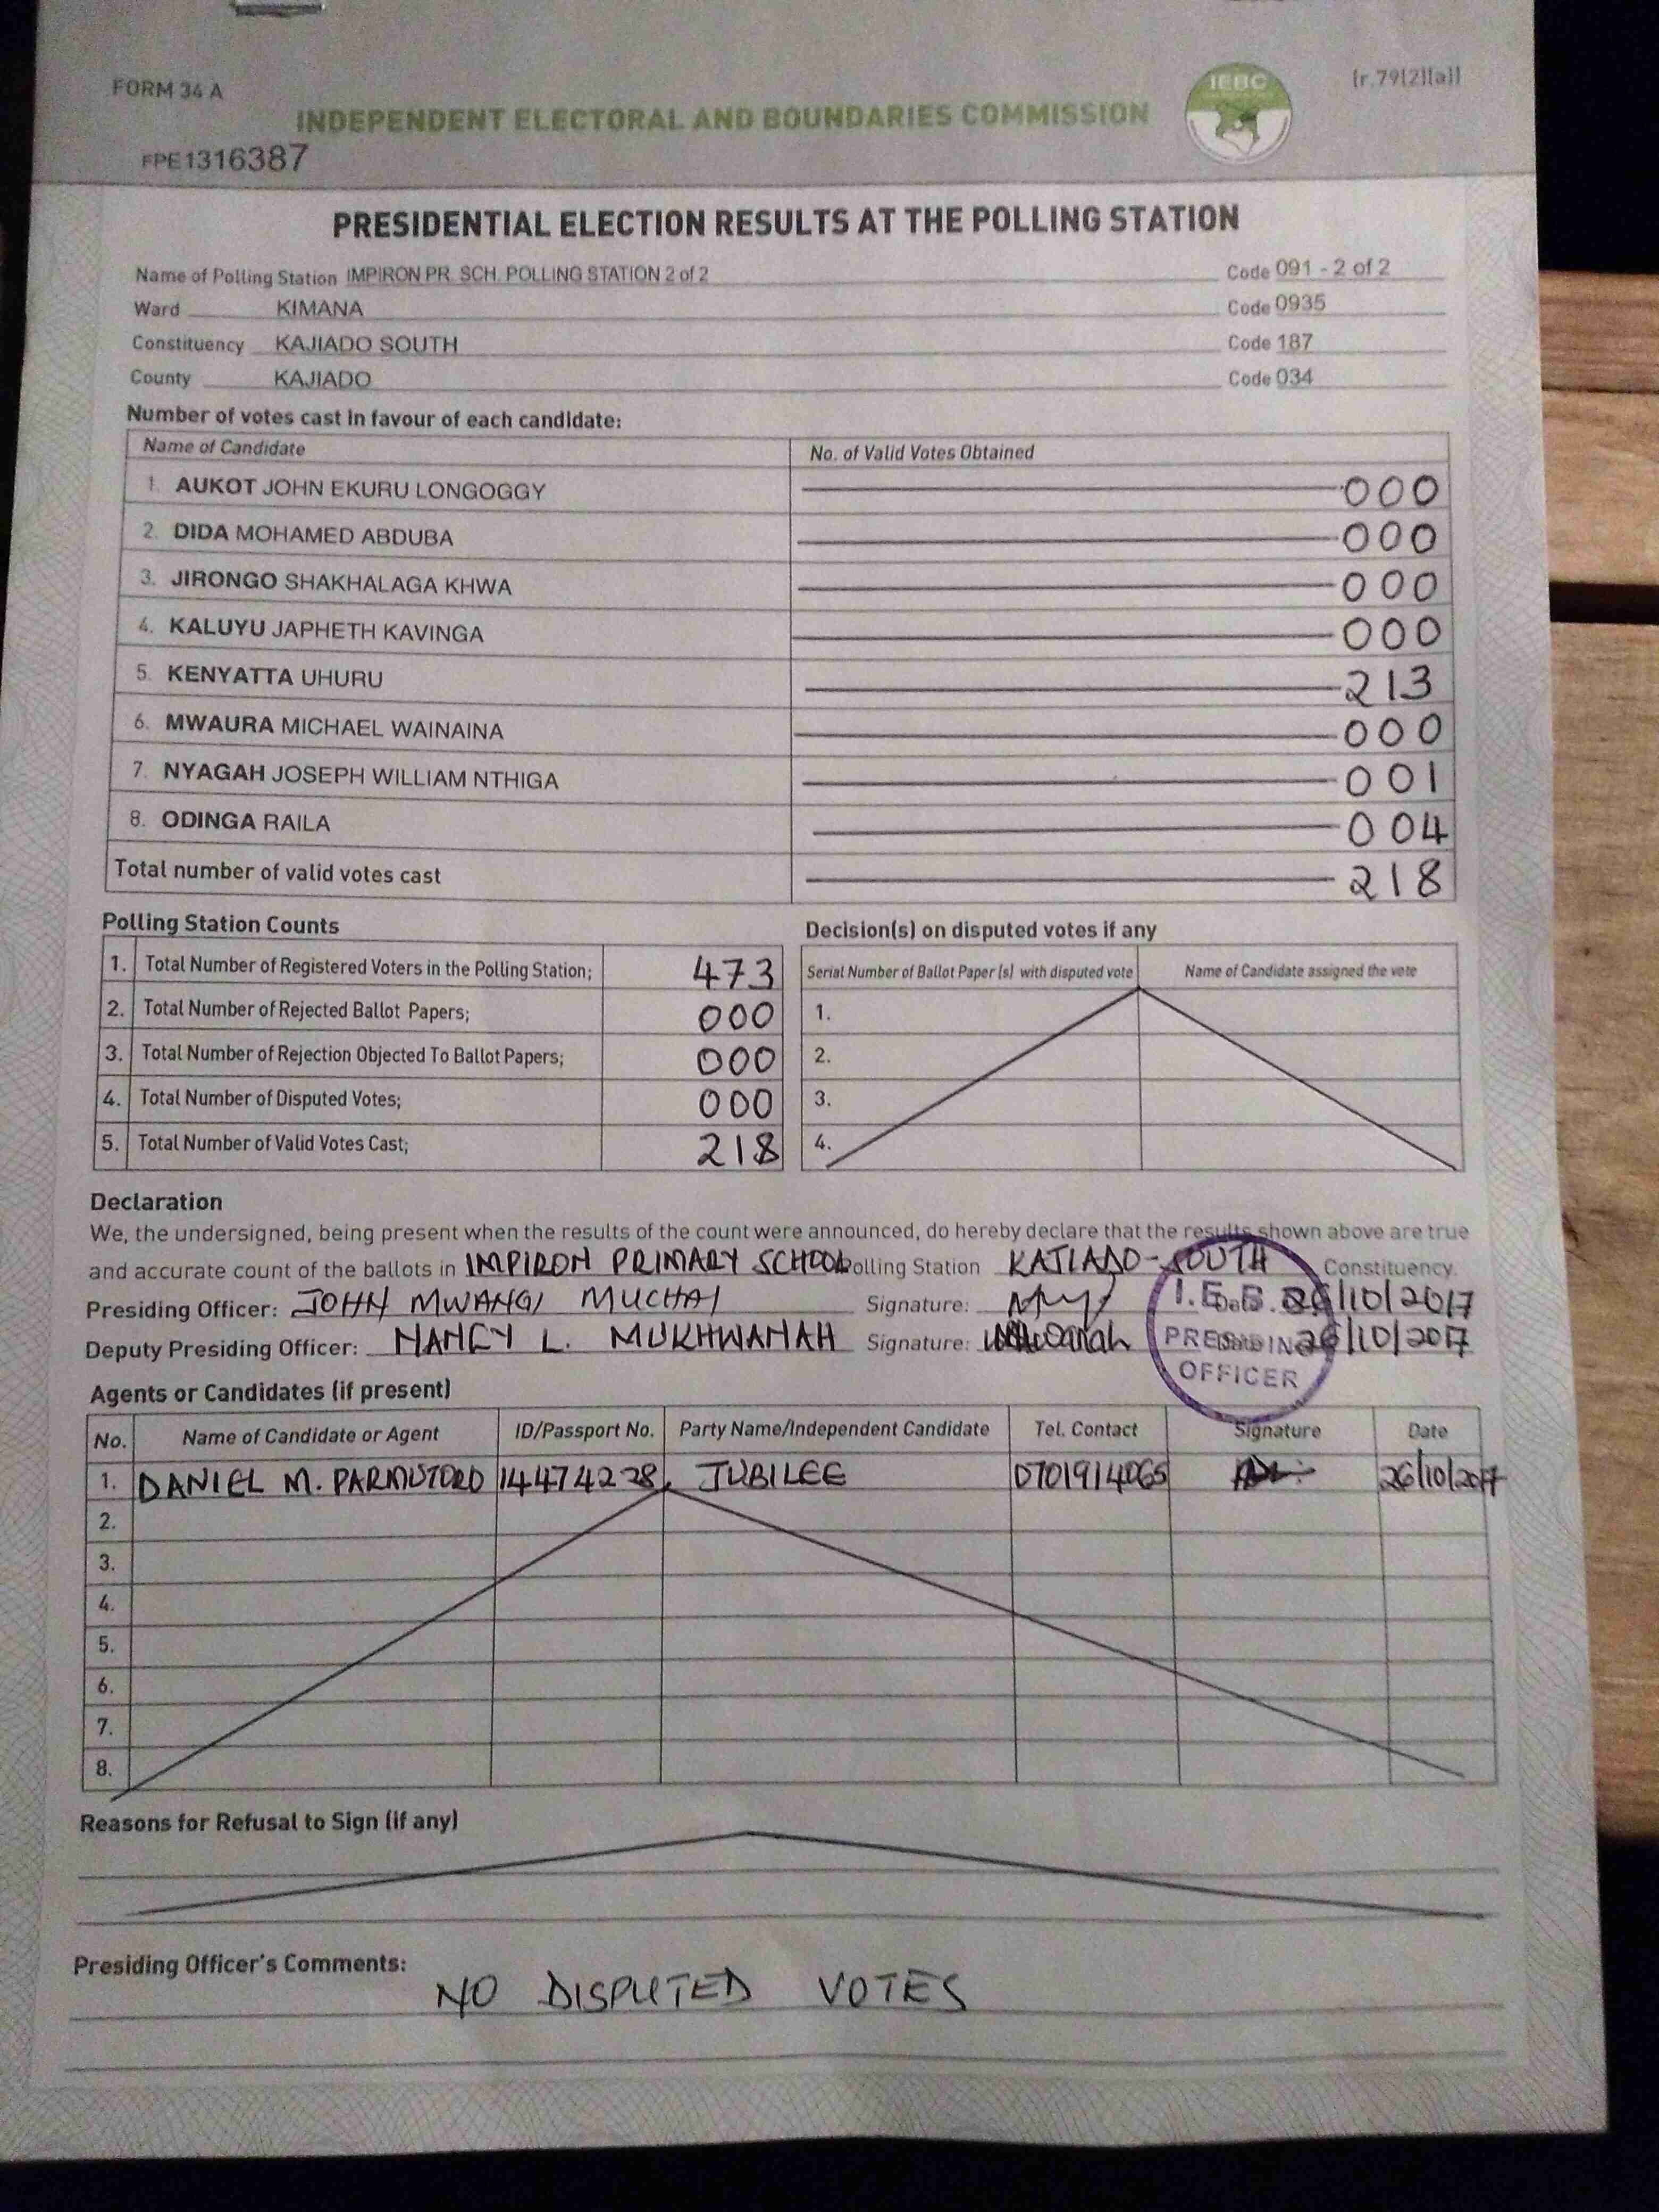 FORM 34 A
(r.79(2)(a))
INDEPENDENT ELECTORAL AND BOUNDARIES COMMISSION
IEBC
FPE1316387
PRESIDENTIAL ELECTION RESULTS AT THE POLLING STATION
Name of Polling Station IMPIRON PR. SCH. POLLING STATION 2 of 2 Code 091 - 2 of 2
Ward KIMANA Code 0935
Constituency KAJIADO SOUTH Code 187
County KAJIADO Code 034
Number of votes cast in favour of each candidate:
Name of Candidate No. of Valid Votes Obtained
1. AUKOT JOHN EKURU LONGOGGY 000
2. DIDA MOHAMED ABDUBA 000
3. JIRONGO SHAKHALAGA KHWA 000
4. KALUYU JAPHETH KAVINGA 000
5. KENYATTA UHURU 213
6. MWAURA MICHAEL WAINAINA 000
7. NYAGAH JOSEPH WILLIAM NTHIGA 001
8. ODINGA RAILA 004
Total number of valid votes cast 218
Polling Station Counts
1. Total Number of Registered Voters in the Polling Station; 473
2. Total Number of Rejected Ballot Papers; 000
3. Total Number of Rejection Objected To Ballot Papers; 000
4. Total Number of Disputed Votes; 000
5. Total Number of Valid Votes Cast; 218
Decision(s) on disputed votes if any
Serial Number of Ballot Paper (s) with disputed vote Name of Candidate assigned the vote
1.
2.
3.
4.
Declaration
We, the undersigned, being present when the results of the count were announced, do hereby declare that the results shown above are true
and accurate count of the ballots in IMPIRON PRIMARY SCHOOL Polling Station KAJIADO-SOUTH Constituency.
Presiding Officer: JOHN MWANGI MUCHAI Signature: Date 26/10/2017
Deputy Presiding Officer: NANCY L. MUKHWANAH Signature: Date 26/10/2017
I.E.B.C
PRESIDING
OFFICER
Agents or Candidates (if present)
No. Name of Candidate or Agent ID/Passport No. Party Name/Independent Candidate Tel. Contact Signature Date
1. DANIEL M. 14474228 JUBILEE 0701914065 26/10/2017
2.
3.
4.
5.
6.
7.
8.
Reasons for Refusal to Sign (if any)
Presiding Officer's Comments: NO DISPUTED VOTES